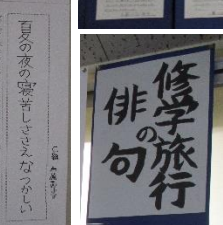 夏の夜の寝苦しささえなつかしい
修学旅行
の
俳句